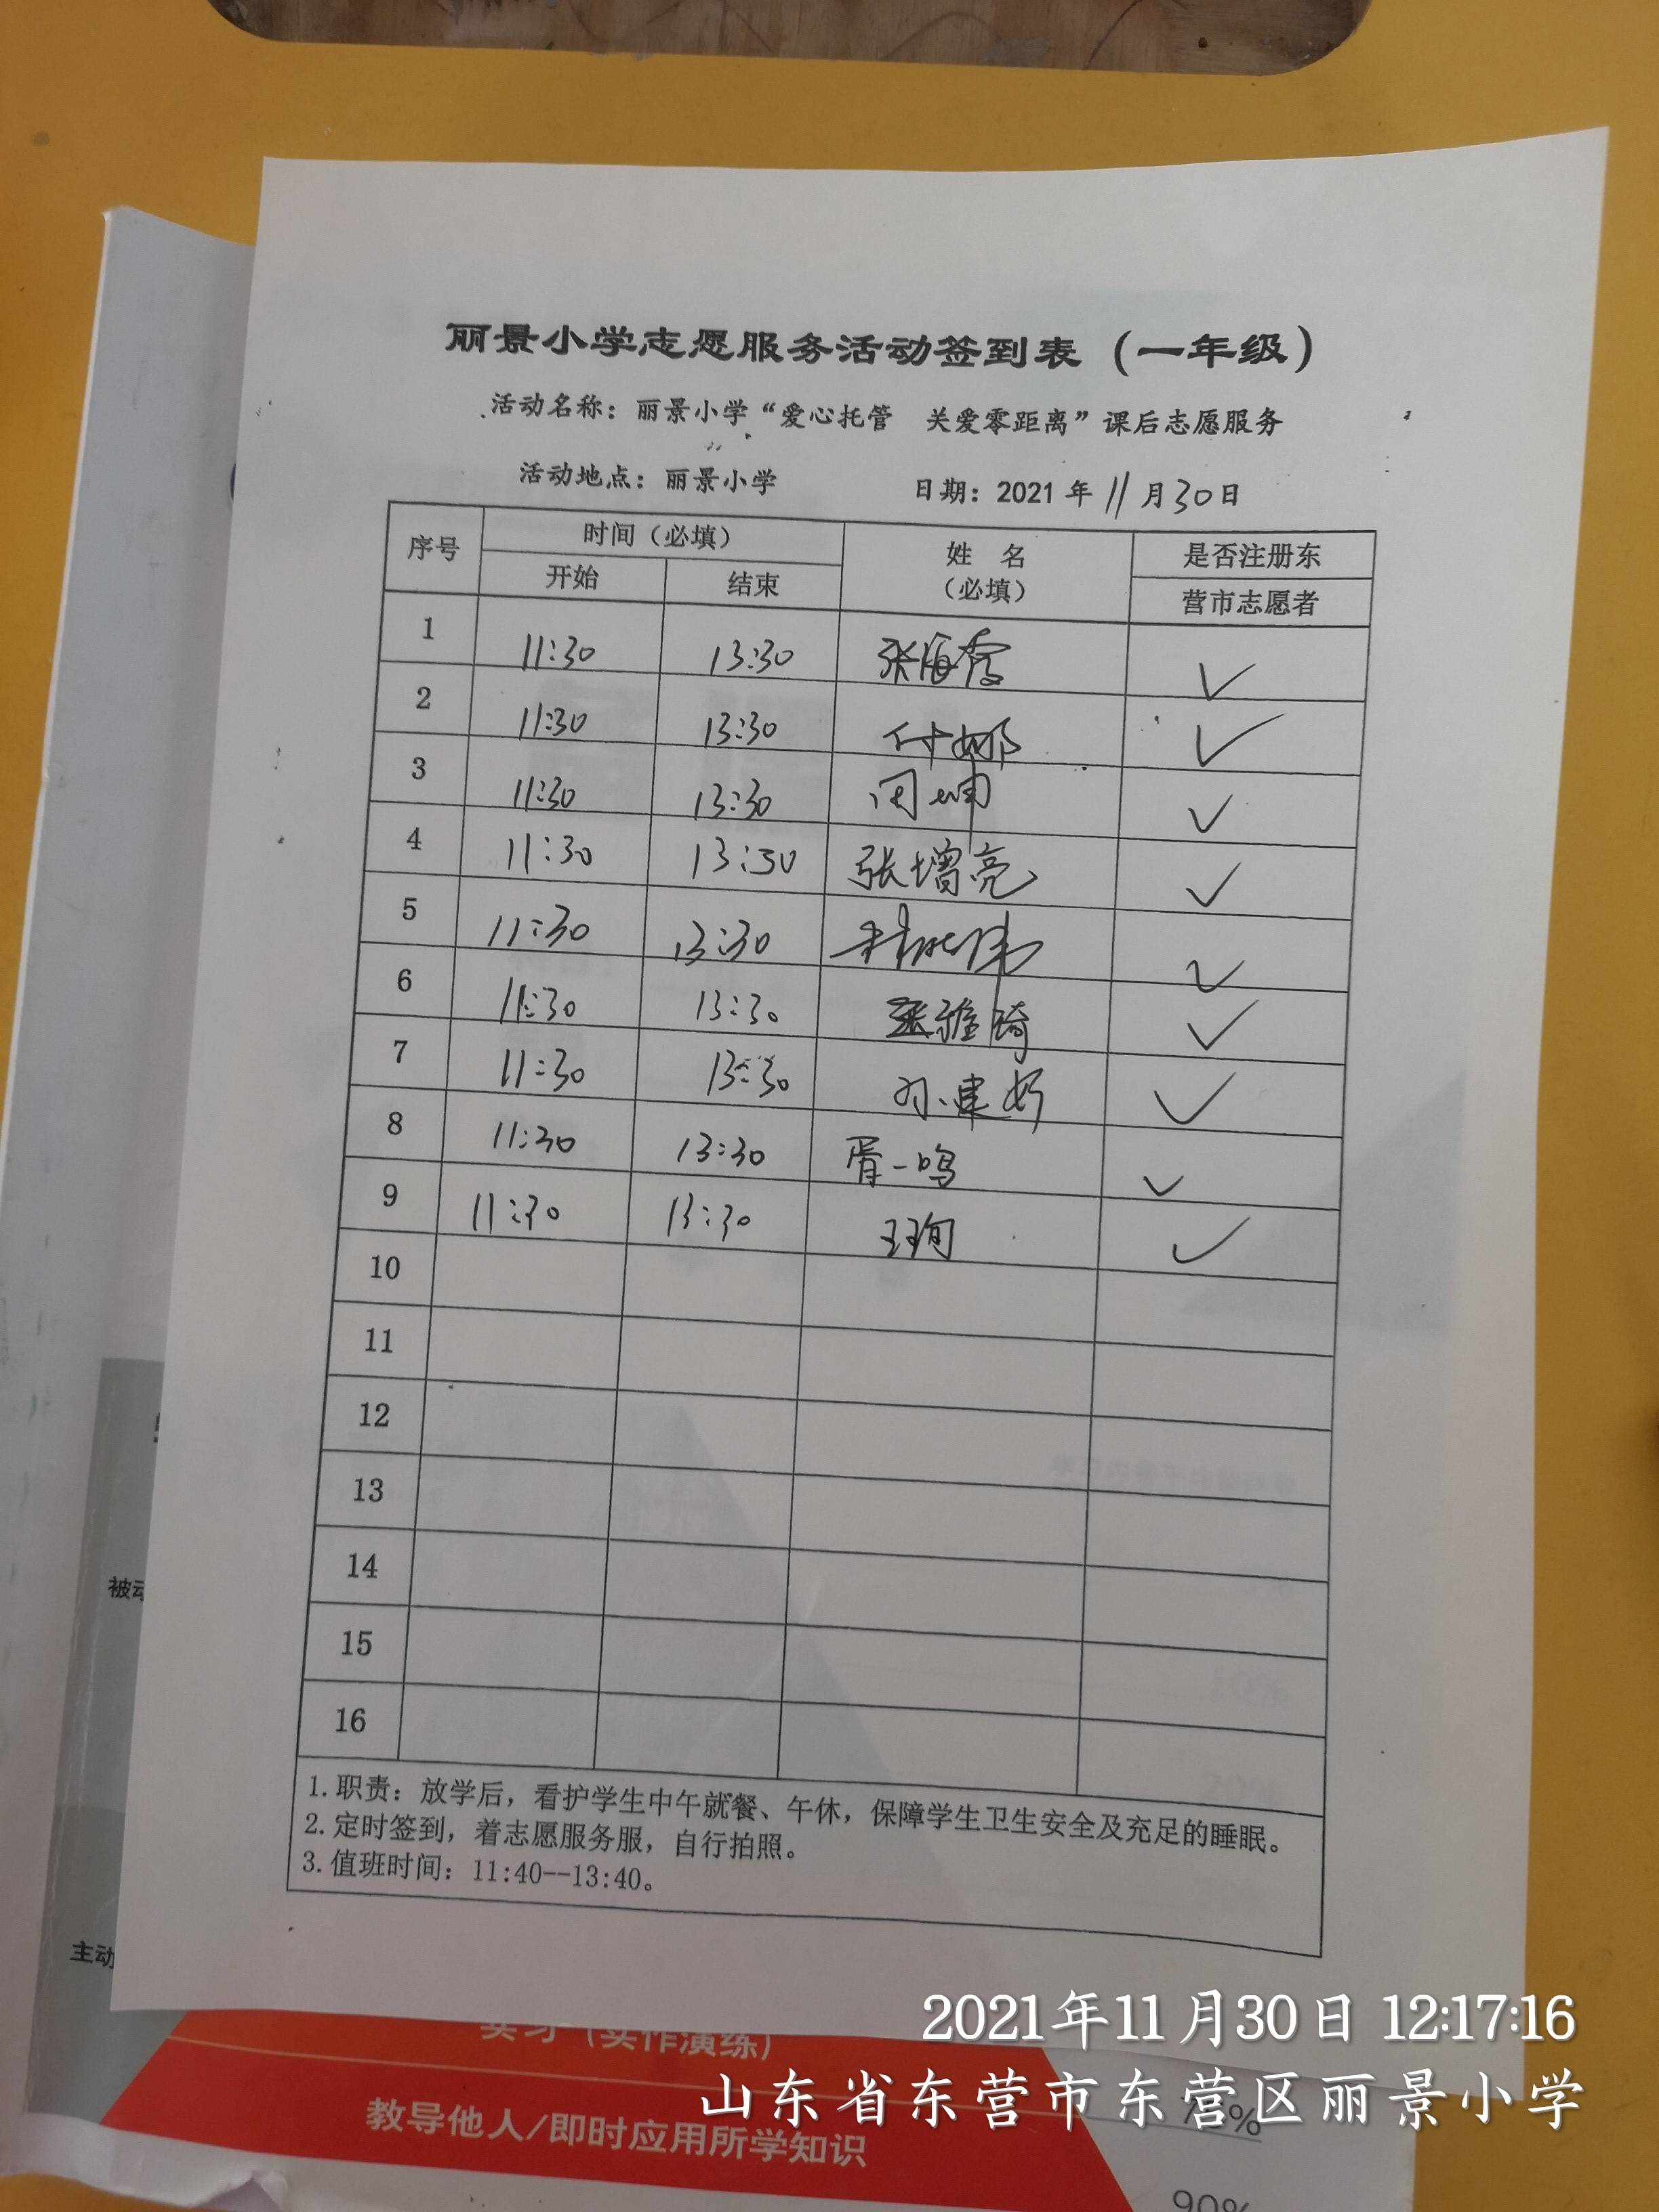 丽景小学志愿服务活动签到表（一年级）
活动名称：丽景小学“爱心托管 关爱零距离”课后志愿服务
活动地点：丽景小学 日期：2021年11月30日
序号 时间（必填） 姓 名 是否注册东
开始 结束 （必填） 营市志愿者
1 11:30 13:30 张海霞 ✓
2 11:30 13:30 付娜 ✓
3 11:30 13:30 周坤 ✓
4 11:30 13:30 张增亮 ✓
5 11:30 13:30 ✓
6 11:30 13:30 张雅琦 ✓
7 11:30 13:30 孙建好 ✓
8 11:30 13:30 胥一鸣 ✓
9 11:30 13:30 王珣 ✓
10
11
12
13
14
15
16
1.职责：放学后，看护学生中午就餐、午休，保障学生卫生安全及充足的睡眠。
2.定时签到，着志愿服务服，自行拍照。
3.值班时间：11:40--13:40。
被动
主动
实习（实作演练）
教导他人/即时应用所学知识
90%
2021年11月30日 12:17:16
山东省东营市东营区丽景小学